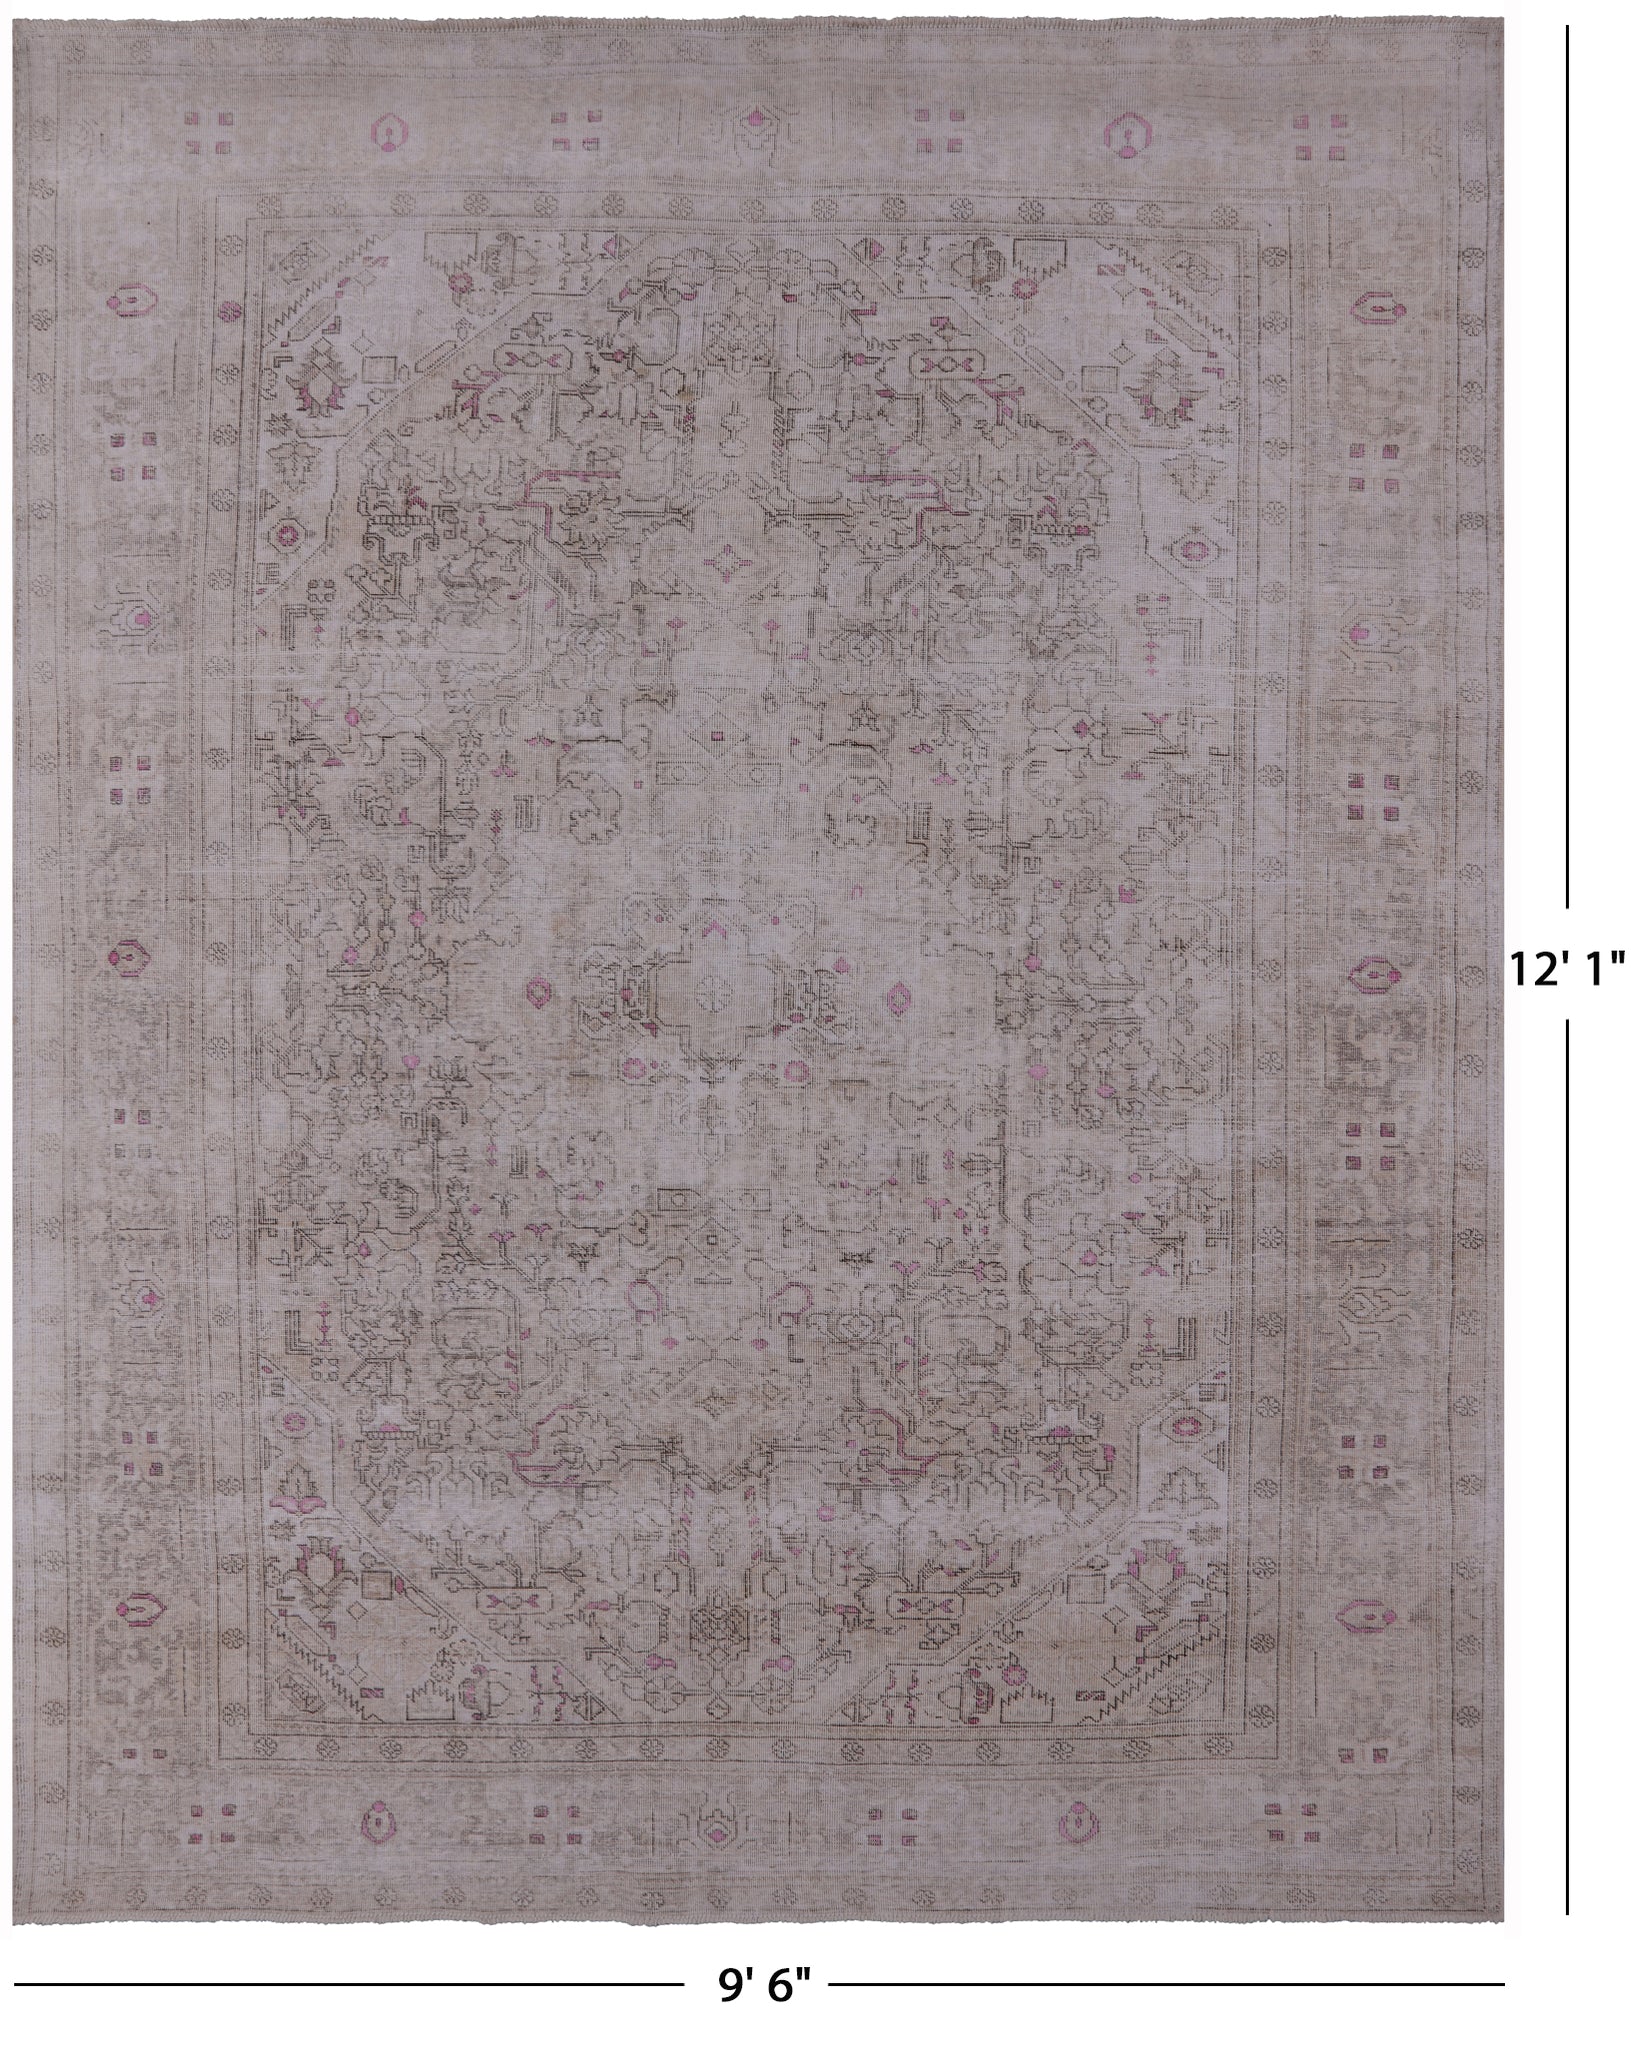 12' 1"
9' 6"